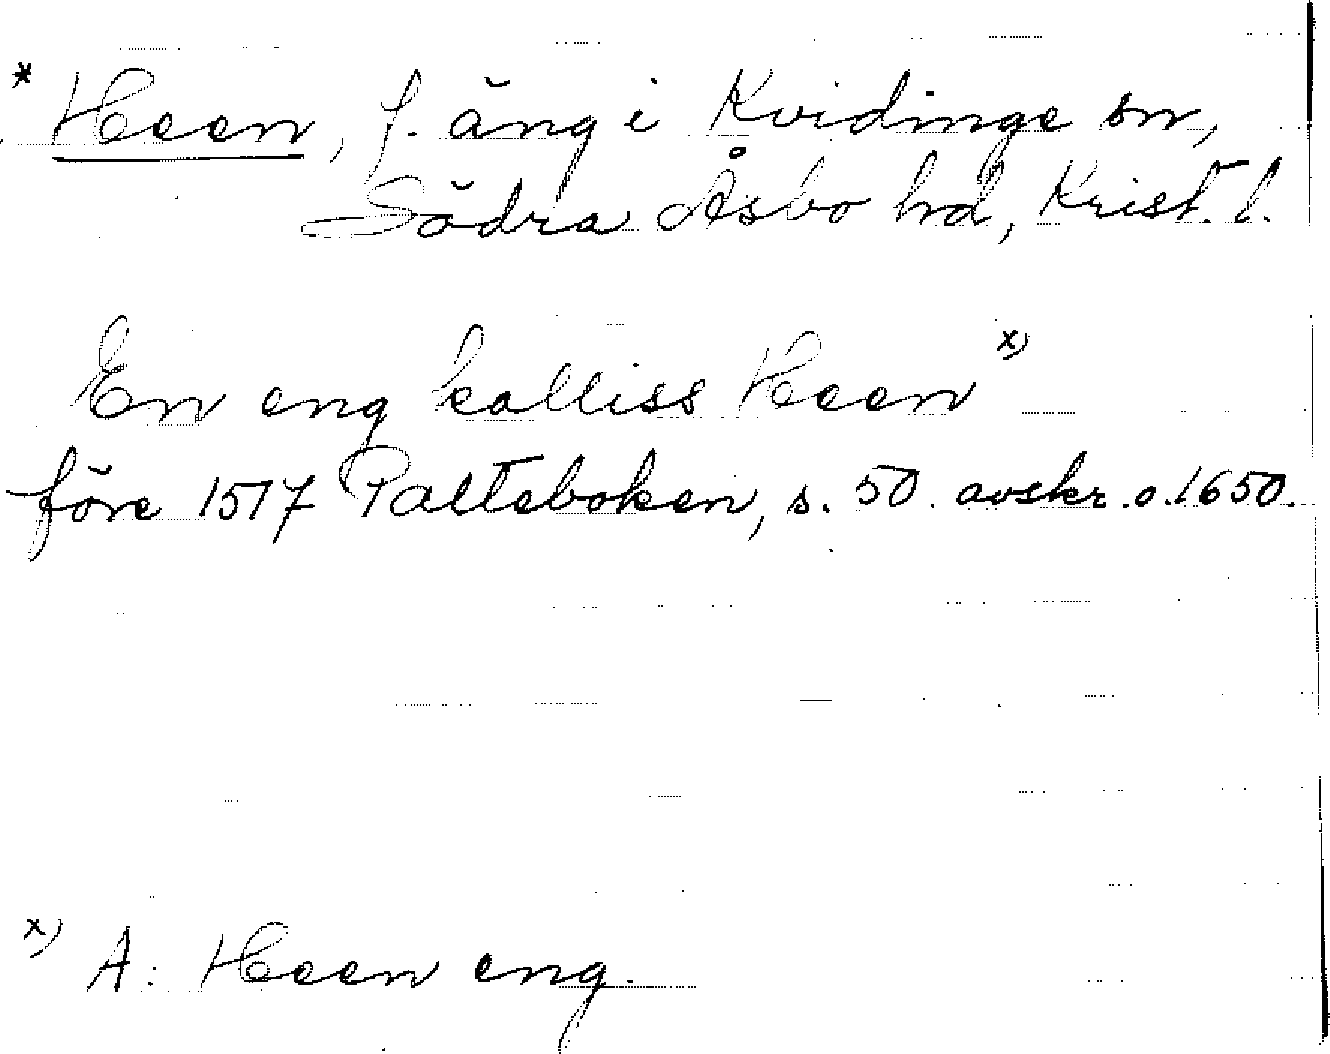 * Heen, f. äng i Kvidinge sn,
Södra Åsbo hd, Krist. l.
En eng kalliss Heen x)
före 1517 Palteboken, s. 50. avskr. o. 1650.
x) A: Heen eng.